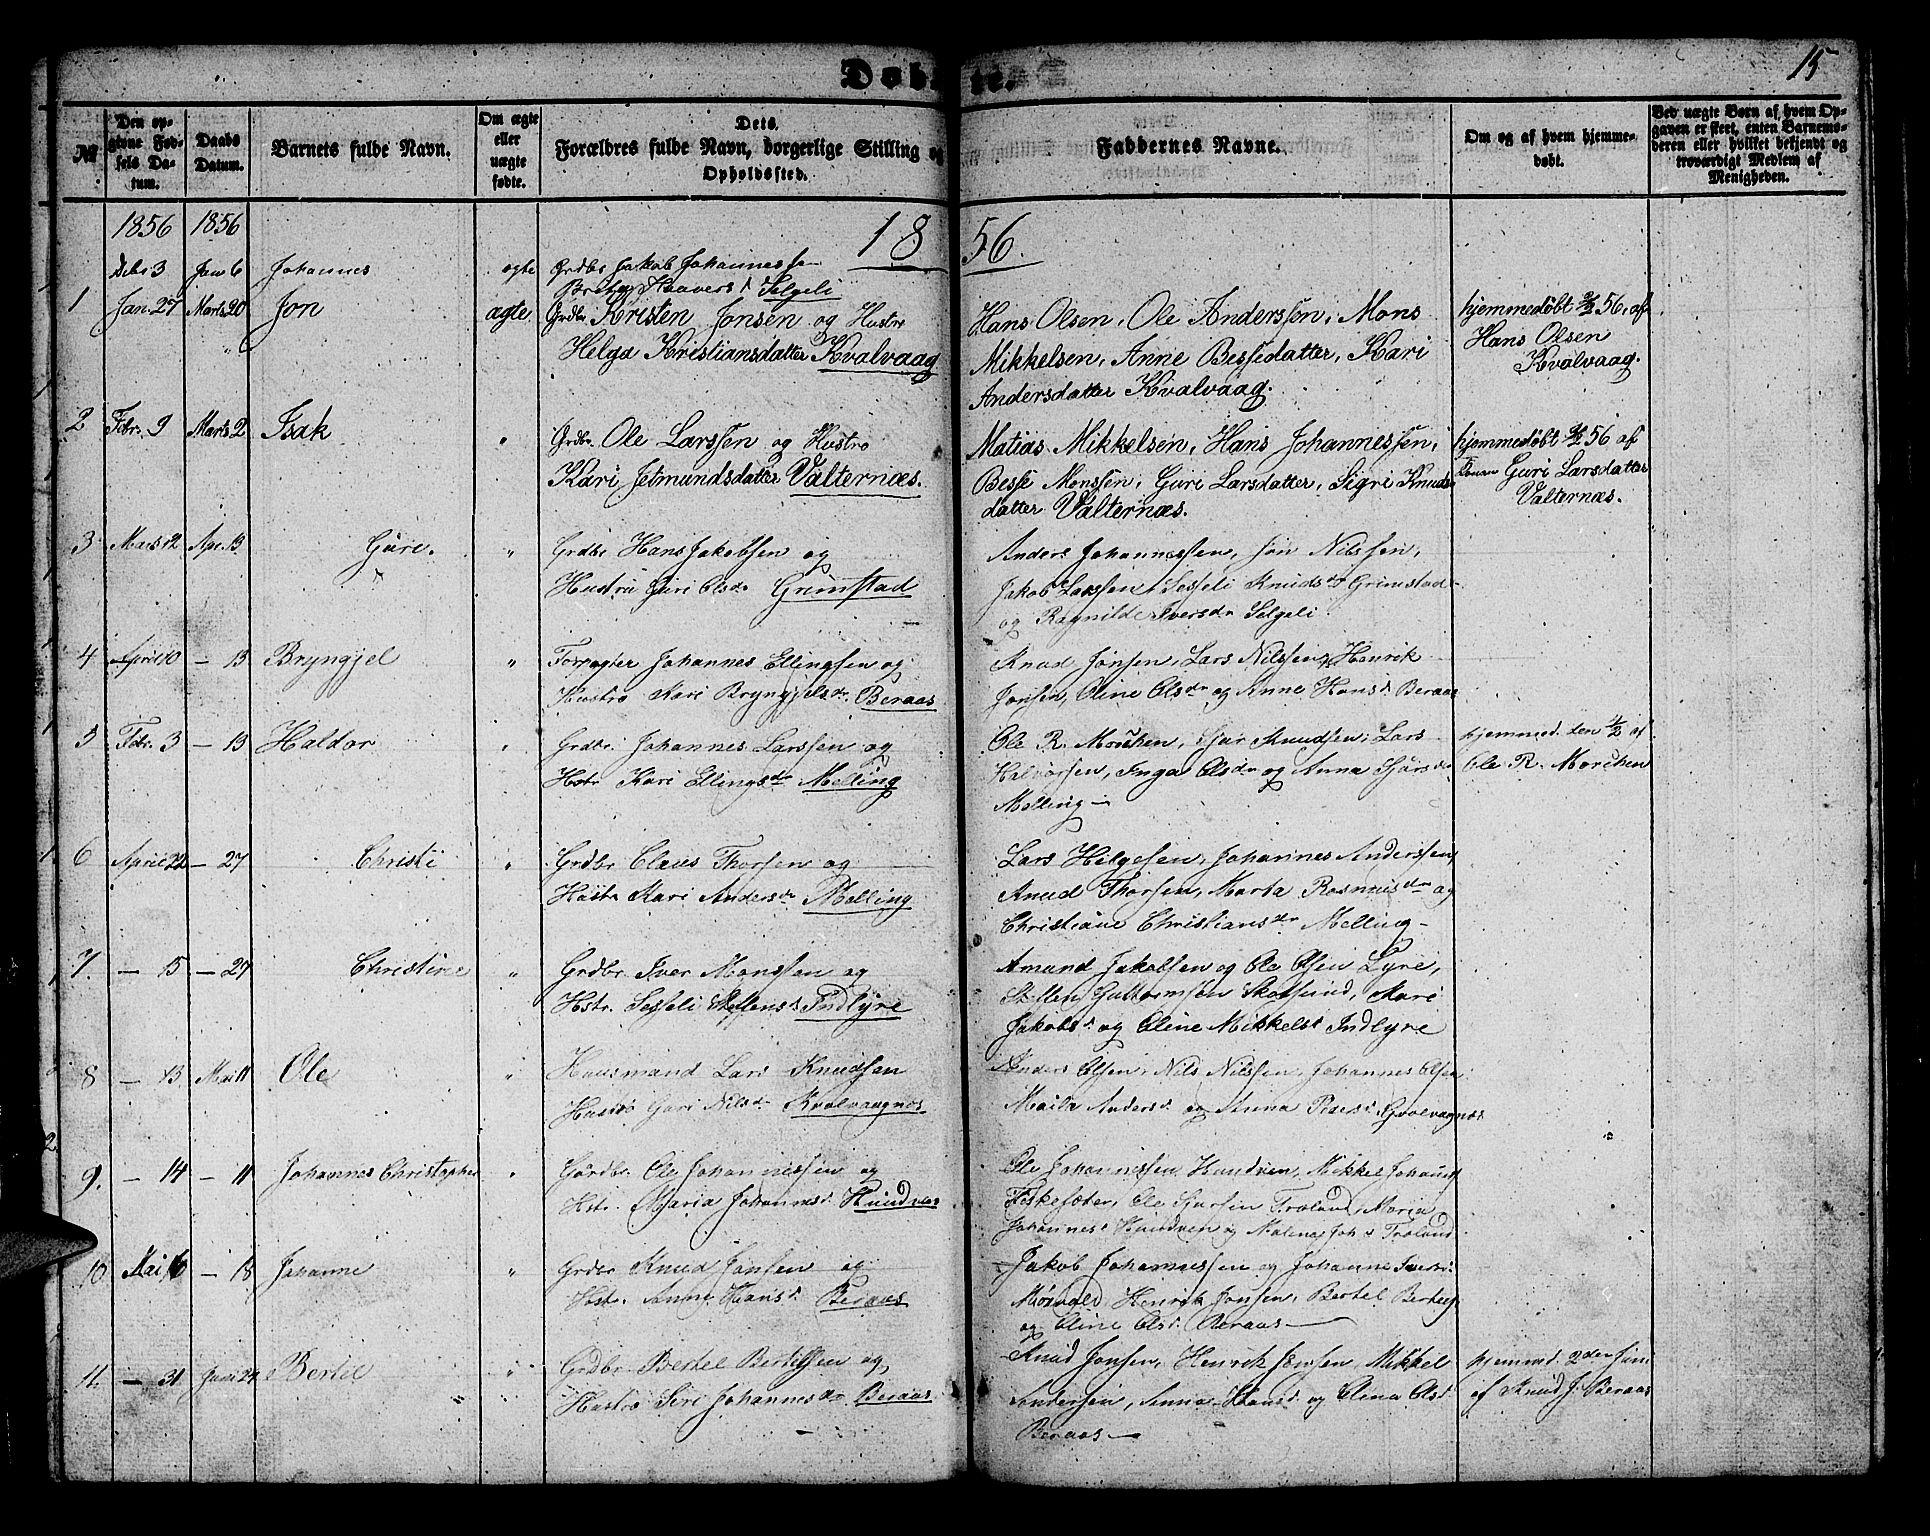 Døbte.
15
№
Den opgivne Fødsels Datum.
Daabs Datum.
Barnets fulde Navn.
Om ægte eller uægte fødte.
Dets Forældres fulde Navn, borgerlige Stilling og Opholdssted.
Faddernes Navne.
Om og af hvem hjemmedøbt.
Ved uægte Børn af hvem Opgaven er skeet, enten Barnemoderen eller hvilket bekjendt og troværdigt Medlem af Menigheden.
1856 1856
1856.
Debr 3 Jan 6 Johannes ægte Grdbr Jakob Johannessen
Selgeli
1 Jan. 27 Marts 20 Jon ægte Grdbr. Kristen Jonsen og Hustro
Helga Kristiansdatter Kvalvaag
Hans Olsen, Ole Anderssen, Mons
Mikkelsen, Anne Bessedatter, Kari
Andersdatter Kvalvaag.
hjemmedøbt 56, af
Hans Olsen
Kvalvaag.
2 Febr. 9 Marts 2 Isak " Grdbr. Ole Larssen og Hustro
Kari Jetmundsdatter Valternæs.
Matias Mikkelsen, Hans Johannessen,
Besse Monssen, Guri Larsdatter, Sigri Knuds-
datter Valternæs.
hjemmedøbt 56 af
Konen Guri Larsdatter
Valternæs.
3 Marts 12 Apr. 13 Gure. " Grdbr Hans Jakobsen og
Hustru Guri Olsdr Grimstad
Anders Johannessen, Jon Nilssen,
Jakob Larssen, Sesseli Knudsdr Grimstad
og Ragnilde Iversdr Selgeli.
4 April 10 — 13 Bryngjel " Forpagter Johannes Ellingsen og
Hustro Kari Bryngjelsdr. Beraas
Knud Jonsen, Lars Nilssen, Henrik
Jonsen, Oline Olsdr og Anne Hansd. Beraas
5 Febr. 3 — 13 Haldor " Grdbr. Johannes Larssen og
Hstr Kari Ellingsdr Melling
Ole R. Morchen, Sjur Knudsen, Lars
Halvorsen, Inga Olsdr og Anna Sjursdr
Melling —
hjemmed. den 4/2 af
Ole R. Morchen
6 April 22 — 27 Christi " Grdbr Claus Thorsen og
Hustr Kari Andersdr Melling
Lars Helgesen, Johannes Anderssen,
Knud Thorsen, Marta Rasmusdr og
Christiane Christiansdr Melling —
7. — 15 — 27 Christine " Grdbr. Iver Monssen og
Hstr. Sesseli Steffensd. Indlyre
Amund Jakobsen og Ole Olsen Lyre,
Steffen Guttormsen Skotsund, Kari
Jakobsd. og Oline Mikkelsd Indlyre
8 — 13 Mai 11 Ole " Huusmand Lars Knudsen
Hustro Guri Nilsdr Kvalvaagnæs
Anders Olsen, Nils Nilssen, Johannes Olsen
Andersd. og Anna
9. — 14 — 11 Johannes Christopher " Gardbr. Ole Johannessen og
Hstr. Maria Johannesd. Hundven
Ole Johannessen Hundven, Mikkel
Fiskesæter, Ole Sjursen Troland, Maria
Johannesd. Hundven og Malena Joh.d. Troland
10 Mai 6 — 18 Johanne " Grdbr Knud Jonsen og
Hstr. Anne Hansd. Beraas
Jakob Johannessen og Johanne
Henrik Jonsen, Bertel
og Oline Olsd. Beraas —
11. — 31 Juni 29 Bertel " Grdbr Bertel Bertelsen og
Hustro Siri Johannesdr Beraas
Knud Jonsen, Henrik Jonsen, Mikkel
Andersen, Anna Hansd og Olina Olsd.
Beraas —
hjemmed. 2den Juni
af Knud J. Beraas